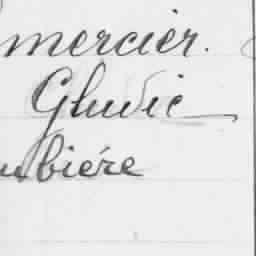 mercier.
Gludic
ubière